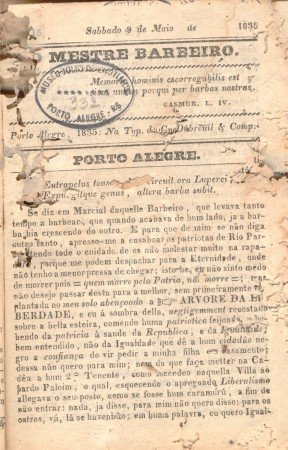 Sabbado 9 de Maio de 1835
MESTRE BARBEIRO.
Memor hominis escorregabilis est
unum porqui per barbas nostras.
CASMUR. L. IV.
MUSEO JULIO DE CASTILHOS
332
PORTO. ALEGRE - RS
Porto Alegre, 1835: Na Typ. de Dubreuil & Comp.
PORTO ALEGRE.
Eutrapelus tonsor circuit ora Luperci
Expungitque genas, altera barba subit.
Se diz em Marcial daquelle Barbeiro, que levava tanto
tempo a barbear, que quando acabava de hum lado, ja a bar-
ba hia crescendo do outro. E para que de mim se não diga
outro tanto, apresso-me a ensaboar as patriotas de Rio Par-
do, tendo todo o cuidado, de os não molestar muito na rapa-
dura, porque me podem despachar para a Eternidade, onde
não tenho a menor pressa de chegar; isto he, eu não sinto medo
de morrer pois = quem morre pela Patria, não morre =; mas
não desejo passar desta para a melhor, sem primeiramente ter
plantada no meu solo abençoado a ARVORE DA LI-
BERDADE, e eu á sombra della, negligemment recostado
sobre a bella esteira, comendo huma patriotica feijoada, e be-
bendo da pericia à saude da Republica, e da Igualdade
bem entendido, não da Igualdade que dê a hum cidadão ne-
gro a confiança de vir pedir a minha filha em casamento;
dessa não quero para mim; nem da que faça metter na Ca-
dêa a hum 2º Tenente, como succedeo naquella Villa ao
pardo Paloim, o qual, esquecendo o apregoado Liberalismo
allegava o seu posto, como se fosse hum caramurú, a fim de
não entrar; nada, ja disse, para mim não quero disso: para os
outros, vá, lá se havenhão; em huma palavra, eu quero Igual-